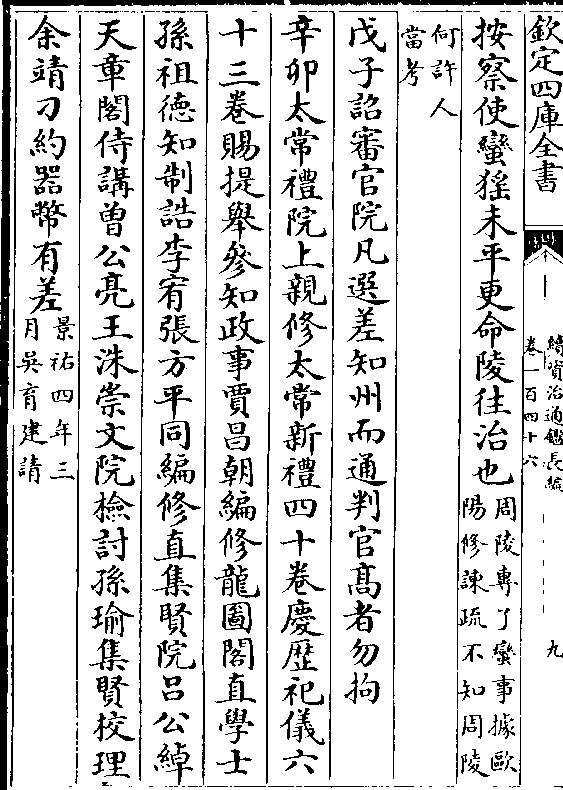 欽定四庫全書
續資治通鑑長編
卷一百四十六
九
按察使蠻猺未平更命陵往治也
周陵專了蠻事據歐
陽修諫疏不知周陵
何許人
當考
戊子詔審官院凡選差知州而通判官髙者勿拘
辛卯太常禮院上親修太常新禮四十卷慶歷祀儀六
十三卷賜提舉參知政事賈昌朝編修龍圖閣直學士
孫祖德知制誥李宥張方平同編修直集賢院吕公綽
天章閣侍講曾公亮王洙崇文院檢討孫瑜集賢校理
余靖刀約器幣有差
景祐四年三
月吳育建請